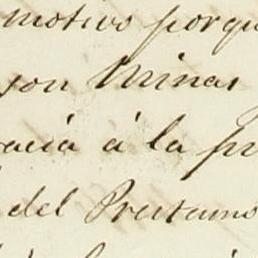 motivo porqu
son Minas
acia á la pr
del Prestamo